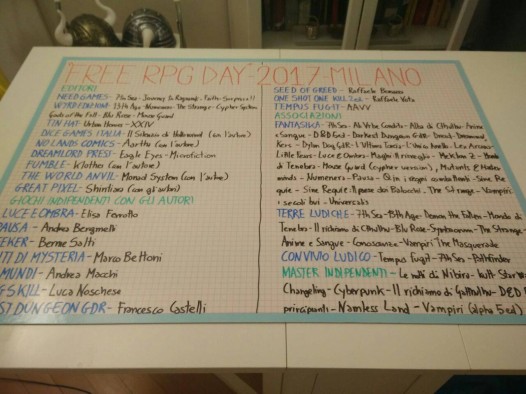 FREE RPG DAY-2017-MILANO
EDITORI
NEED GAMES - 7th Sea - Journey to Ragnarok - Faith -
WYRD EDIZIONI - 13th Age - Numenera - The Strange - Cypher System
Gods of the Fall - Blu Rose - Mouse Guard
TIN HAT - Urban Heroes - XXIV
DICE GAMES ITALIA - Il Silenzio di Hollowind (con l'autore)
NO LANDS COMICS - Aarthi (con l'autore)
DREAMLORD PRESS - Eagle Eyes - Microfiction
FUMBLE - Klothos (con l'autore)
THE WORLD ANVIL - Monad System (con l'autore)
GREAT PIXEL - Shintiara (con gli autori)
GIOCHI INDIPENDENTI CON GLI AUTORI
LUCE E OMBRA - Elisa
PAUSA - Andrea
EKER - Berne Salti
ITI DI MYSTERIA - Marco Bettoni
MUNDI - Andrea Macchi
G SKILL - Luca Noschese
ST DUNGEON GDR - Francesco Castelli
SEED OF GREED - Raffaele
ONE SHOT ONE KILL - Raffaele Vota
TEMPUS FUGIT - AAVV
ASSOCIAZIONI
FANTASIKA - 7th Sea - Ab Urbe Condita - Alba di Cthulhu - Anime
e Sangue - D&D 5ed - Darkest Dungeon GDR - Dread - Dreamlord,
Kers - Dylan Dog GDR - L'Ultima Torcia - L'Unico Anello - Lex Arcana -
Little Fears - Luce e Ombra - Maghi -
di Tenebra - Mouse Guard (cypher version), Mutants & Master
minds - Numenera - Pausa - Qin, i regni combattenti - Sine Re
quie - Sine Requie: Il paese dei Balocchi. The Strange - Vampiri
i secoli bui - Universalis
TERRE LUDICHE - 7th Sea - 13th Age - Demon the Fallen - Mondo di
Tenebra - Il richiamo di Cthulhu - Blu Rose - The Strange -
Anime e Sangue - Conoscenza - Vampiri The Masquerade
CONVIVIO LUDICO - Tempus Fugit - 7th Sea - Pathfinder
MASTER INDIPENDENTI - Le notti di Nibiru -
Changeling - Cyberpunk - Il richiamo di Cthulhu - D&D
principianti - Nameless Land - Vampiri (alpha 5ed)